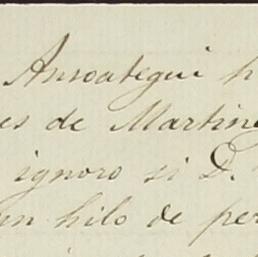 Ansoategui h
es de Martine
ignoro si D.
un hilo de per